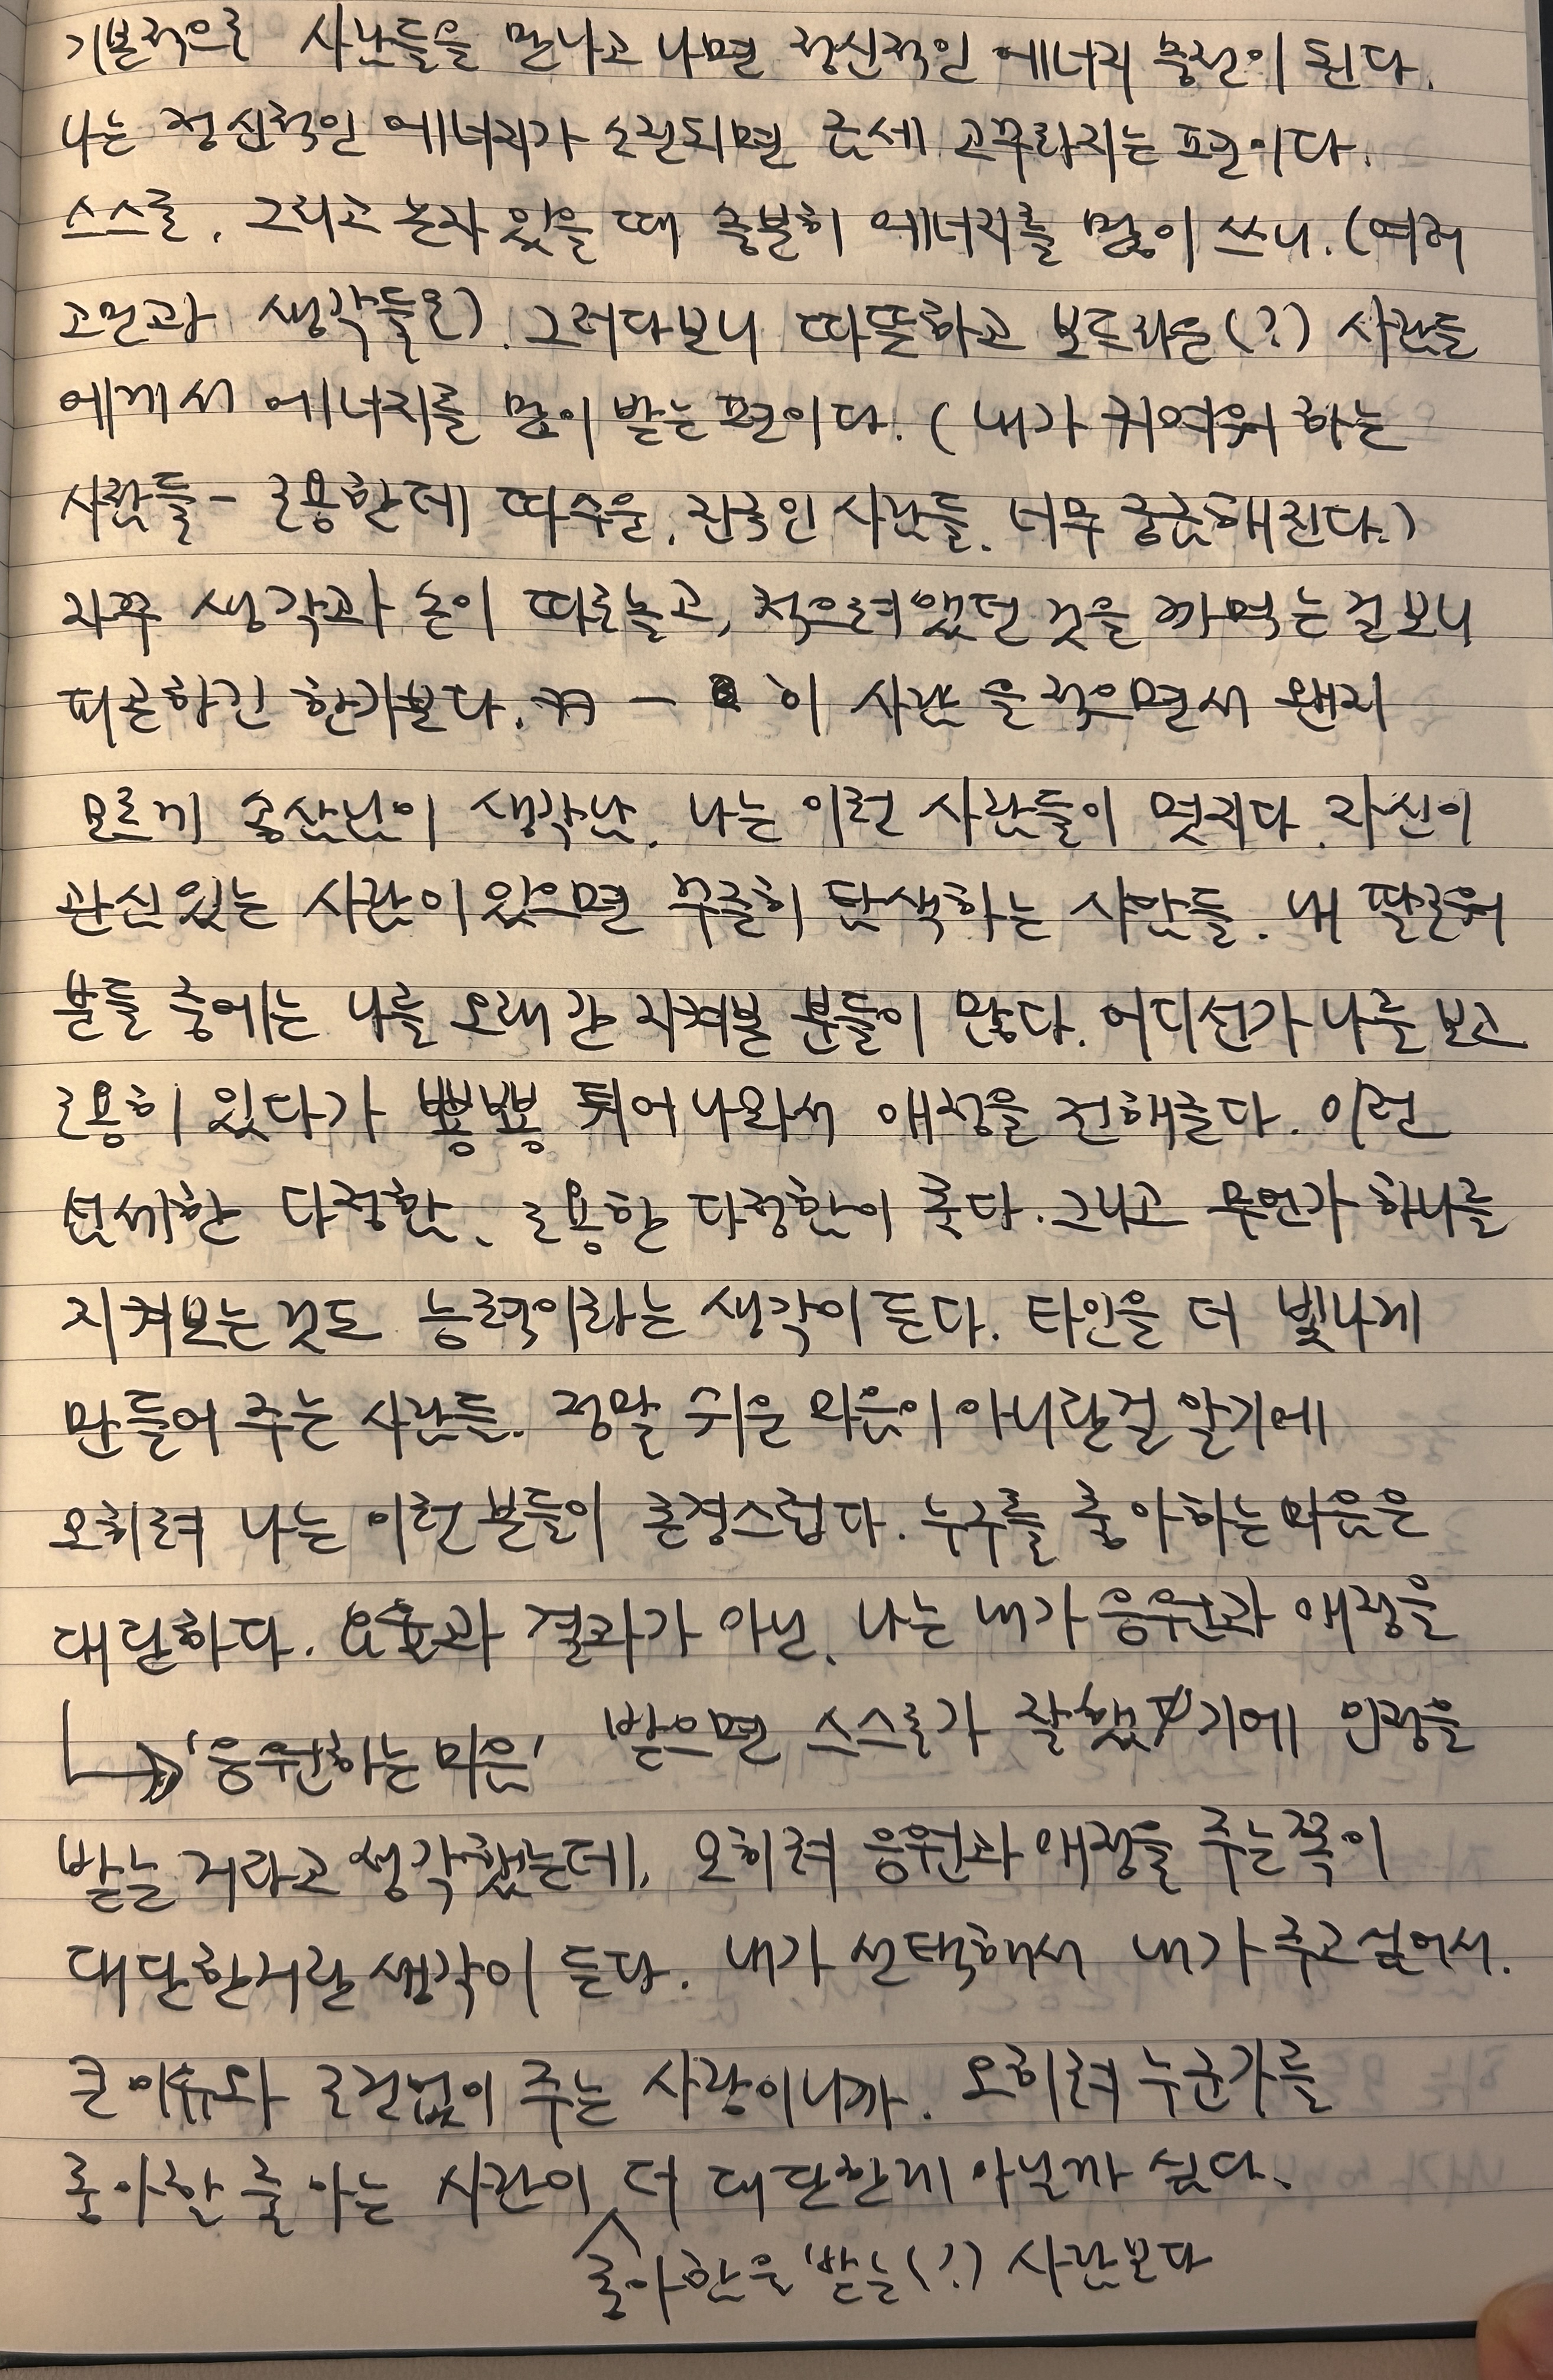 기본적으로 사람들을 만나고 나면 정신적인 에너지 충전이 된다.
나는 정신적인 에너지가 소진되면 금세 고꾸라지는 편이다.
스스로, 그리고 혼자 있을 때 충분히 에너지를 많이 쓰니. (여러
고민과 생각들로) 그러다보니 따뜻하고 보드라운(?) 사람들
에게서 에너지를 많이 받는 편이다. (내가 귀여워 하는
사람들 - 조용한데 따수운, 진국인 사람들. 너무 궁금해진다.)
자꾸 생각과 손이 따로놀고, 적으려 했던 것을 까먹는 걸 보니
피곤하긴 한가보다. ㅋㅋ - 이 사람을 적으면서 왠지
모르게 송산님이 생각남. 나는 이런 사람들이 멋지다. 자신이
관심있는 사람이 있으면 꾸준히 탐색하는 사람들. 내 팔로워
분들 중에는 나를 오래 간 지켜본 분들이 많다. 어디선가 나를 보고
조용히 있다가 뿅뿅 튀어나와서 애정을 전해준다. 이런
섬세한 다정함, 조용한 다정함이 좋다. 그리고 무언가 하나를
지켜보는 것도 능력이라는 생각이 든다. 타인을 더 빛나게
만들어 주는 사람들. 정말 쉬운 마음이 아니란걸 알기에
오히려 나는 이런 분들이 존경스럽다. 누구를 좋아하는 마음은
대단하다. 효과 결과가 아닌, 나는 내가 응원과 애정을
↳ '응원하는 마음' 받으면 스스로가 잘했기에 인정을
받는 거라고 생각했는데, 오히려 응원과 애정을 주는쪽이
대단한거란 생각이 든다. 내가 선택해서 내가 주고싶어서.
큰 이유와 조건없이 주는 사랑이니까. 오히려 누군가를
좋아할 줄 아는 사람이 더 대단한게 아닐까 싶다.
^ 좋아함을 받는(?) 사람보다